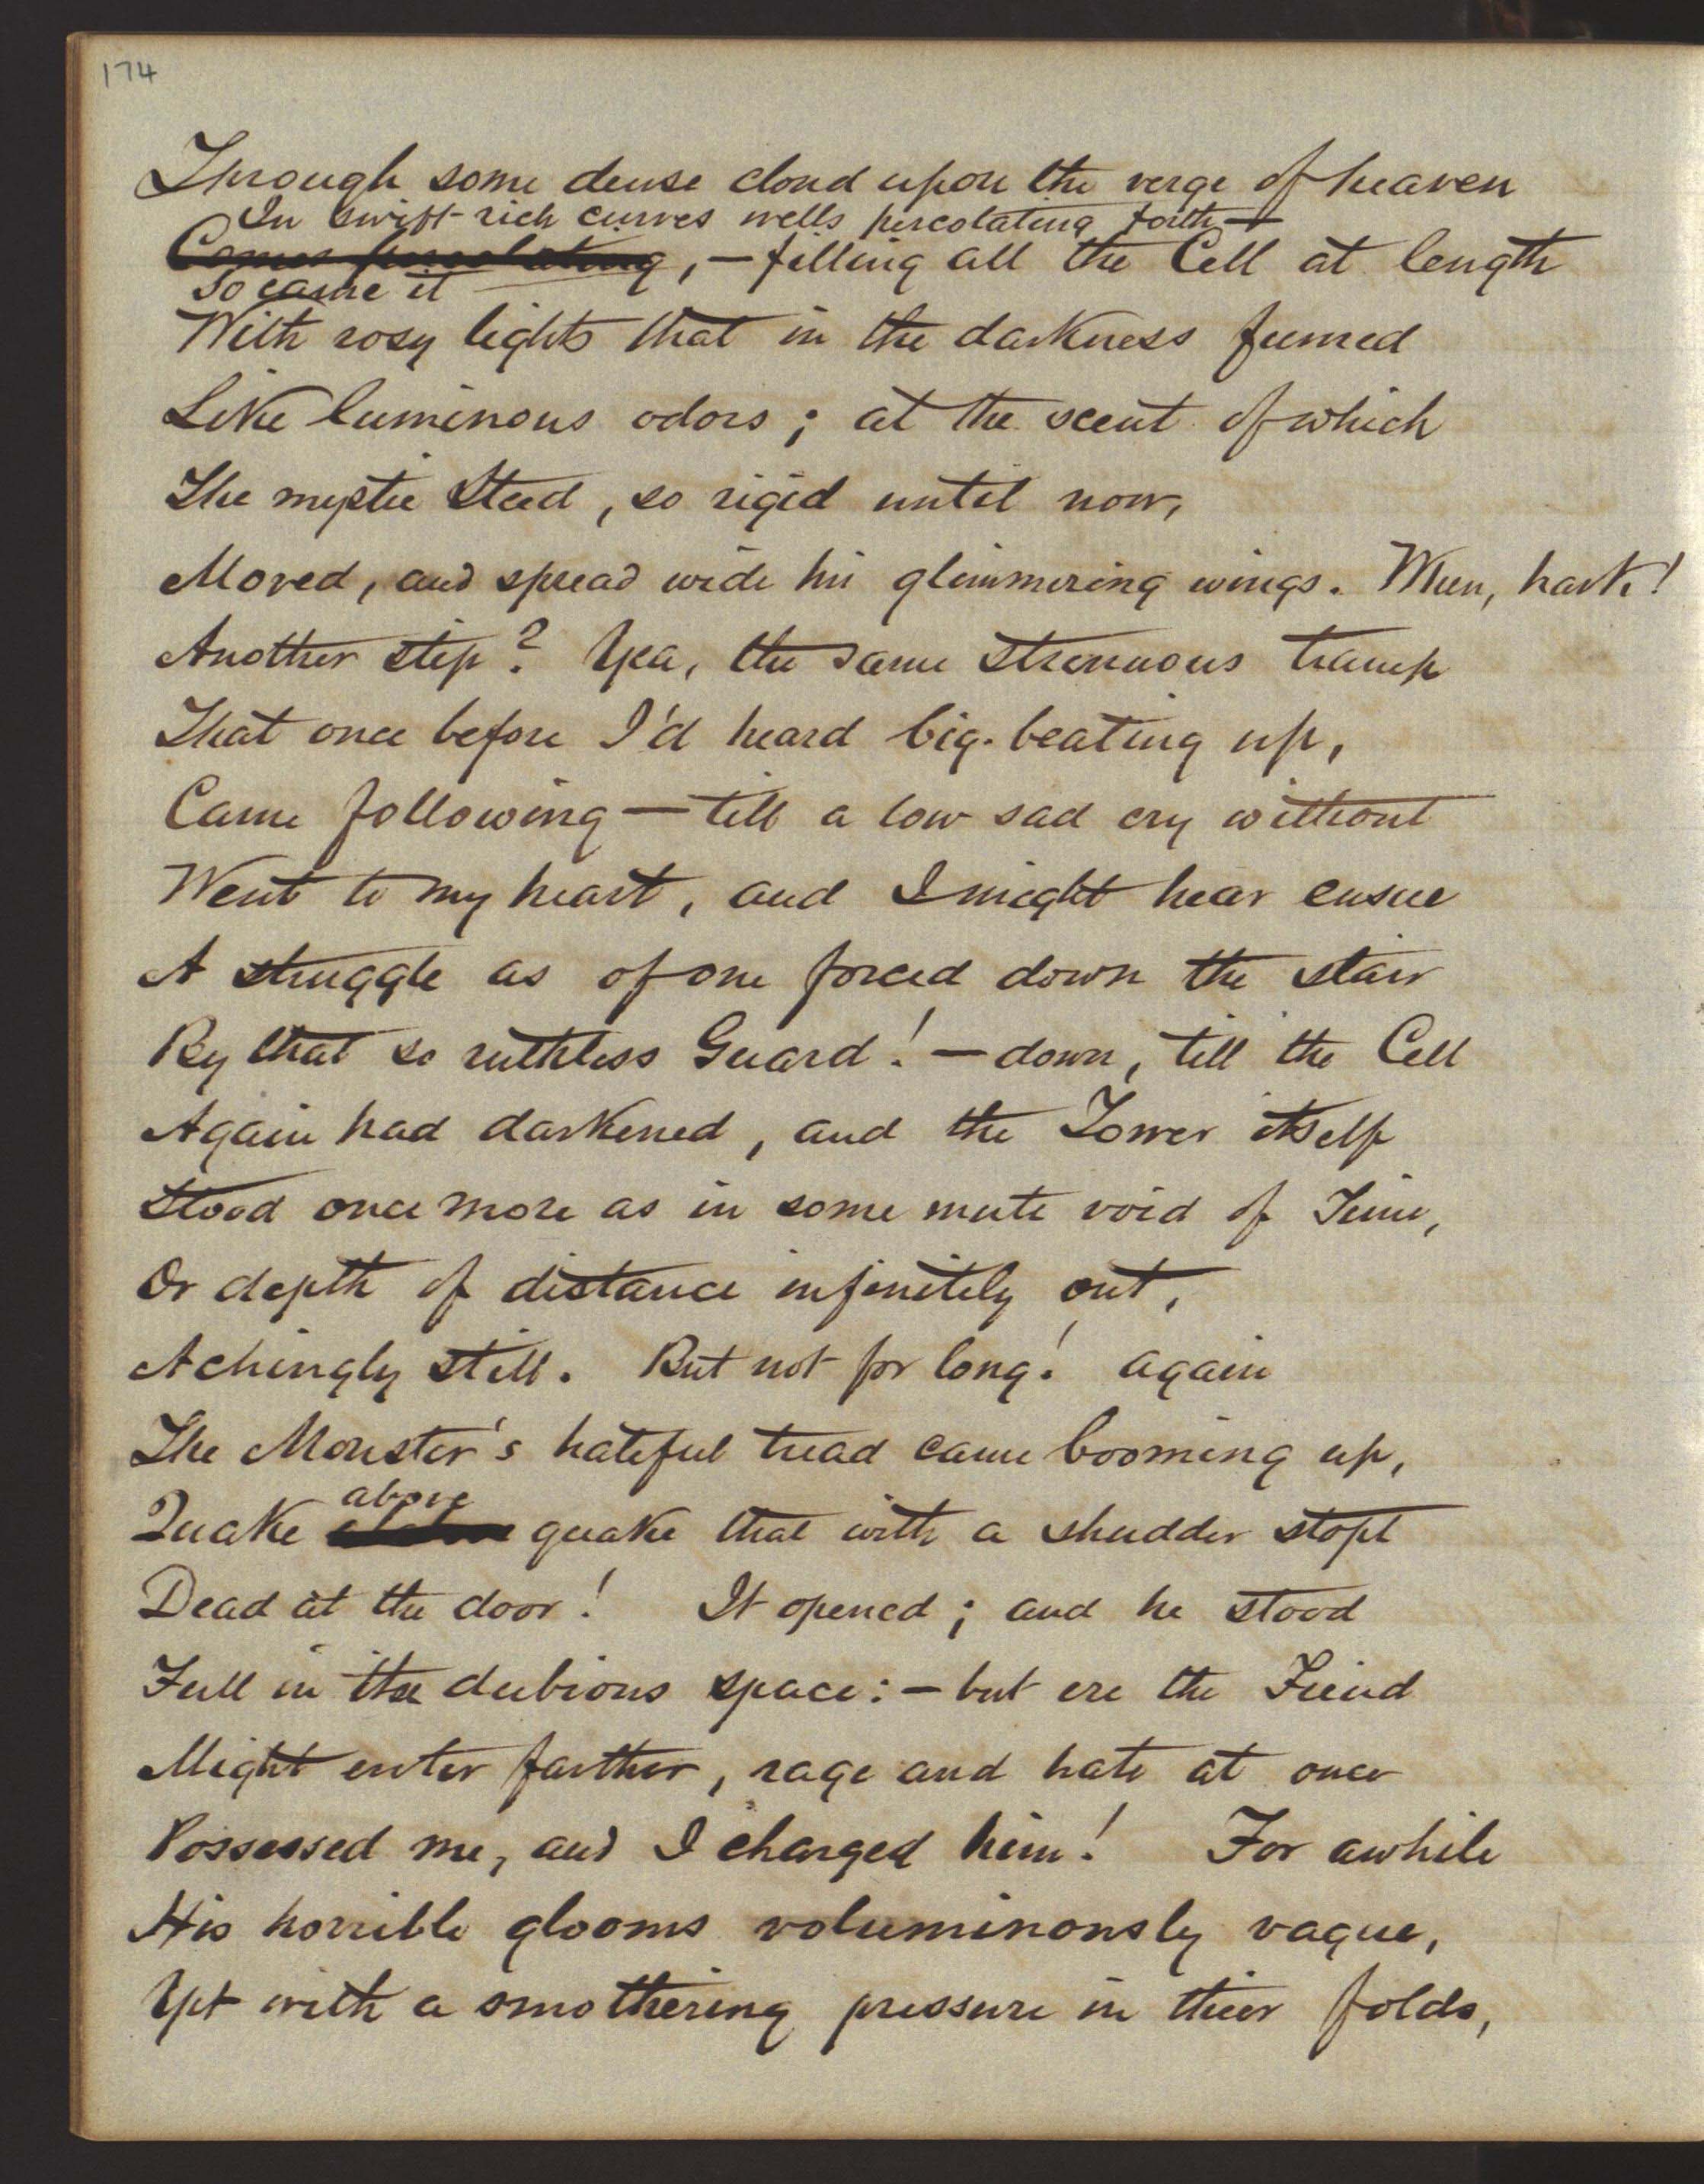 174
Through some dense cloud upon the verge of heaven
In swift-rich curves wells percolating forth —
Comes percolating, — filling all the Cell at length
So came it
With rosy lights that in the darkness fumed
Like luminous odors; at the scent of which
The mystic Steed, so rigid until now,
Moved, and spread wide his glimmering wings. When, hark!
Another step? Yea, the same strenuous tramp
That once before I'd heard big-beating up,
Came following — till a low sad cry without
Went to my heart, and I might hear ensue
A struggle as of one forced down the stair
By that so ruthless Guard! — down, till the Cell
Again had darkened, and the Tower itself
Stood once more as in some mute void of Time,
Or depth of distance infinitely out,
Achingly still. But not for long! again
The Monster's hateful tread came booming up,
above
Quake quake that with a shudder stopt
Dead at the door! It opened; and he stood
Full in the dubious space: — but ere the Fiend
Might enter farther, rage and hate at once
Possessed me, and I charged him! For awhile
His horrible glooms voluminously vague,
Yet with a smothering pressure in their folds,